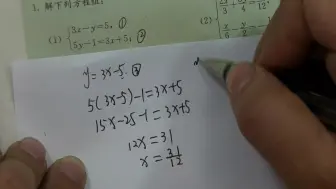 1. 解下列方程组:
(1) { 3x-y=5, ①
5y-1=3x+5; ②
(2)
y=3x-5 ③
5(3x-5)-1=3x+5
15x-25-1=3x+5
12x=31
x=31/12